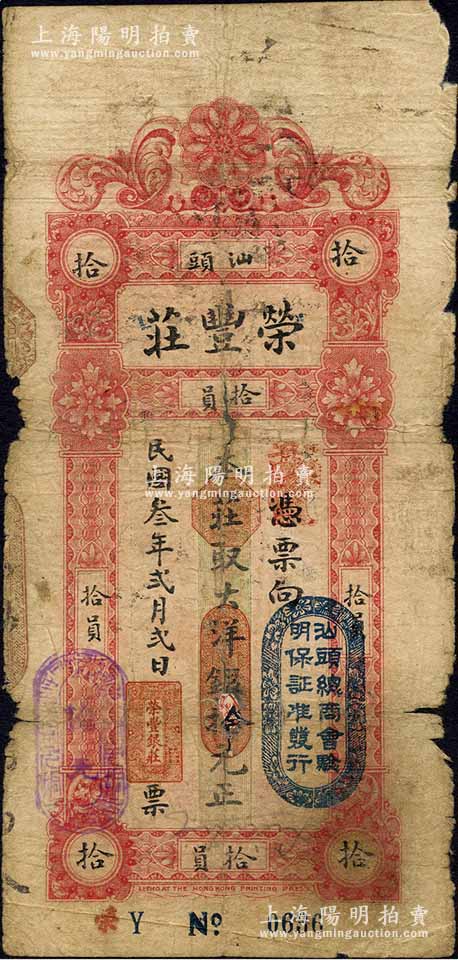 上海陽明拍賣
www.yangmingauction.com
拾
汕頭
拾
榮豐莊
拾員
憑票向
本莊取大洋銀拾元正
民國叁年弍月弍日
票
拾員
拾員
汕頭總商會驗
明保証准發行
榮豐銀莊
上海陽明拍賣
www.yangmingauction.com
拾
拾員
拾
LITHO. AT THE HONGKONG PRINTING PRESS
Y No 0656
上海陽明拍賣
www.yangmingauction.com